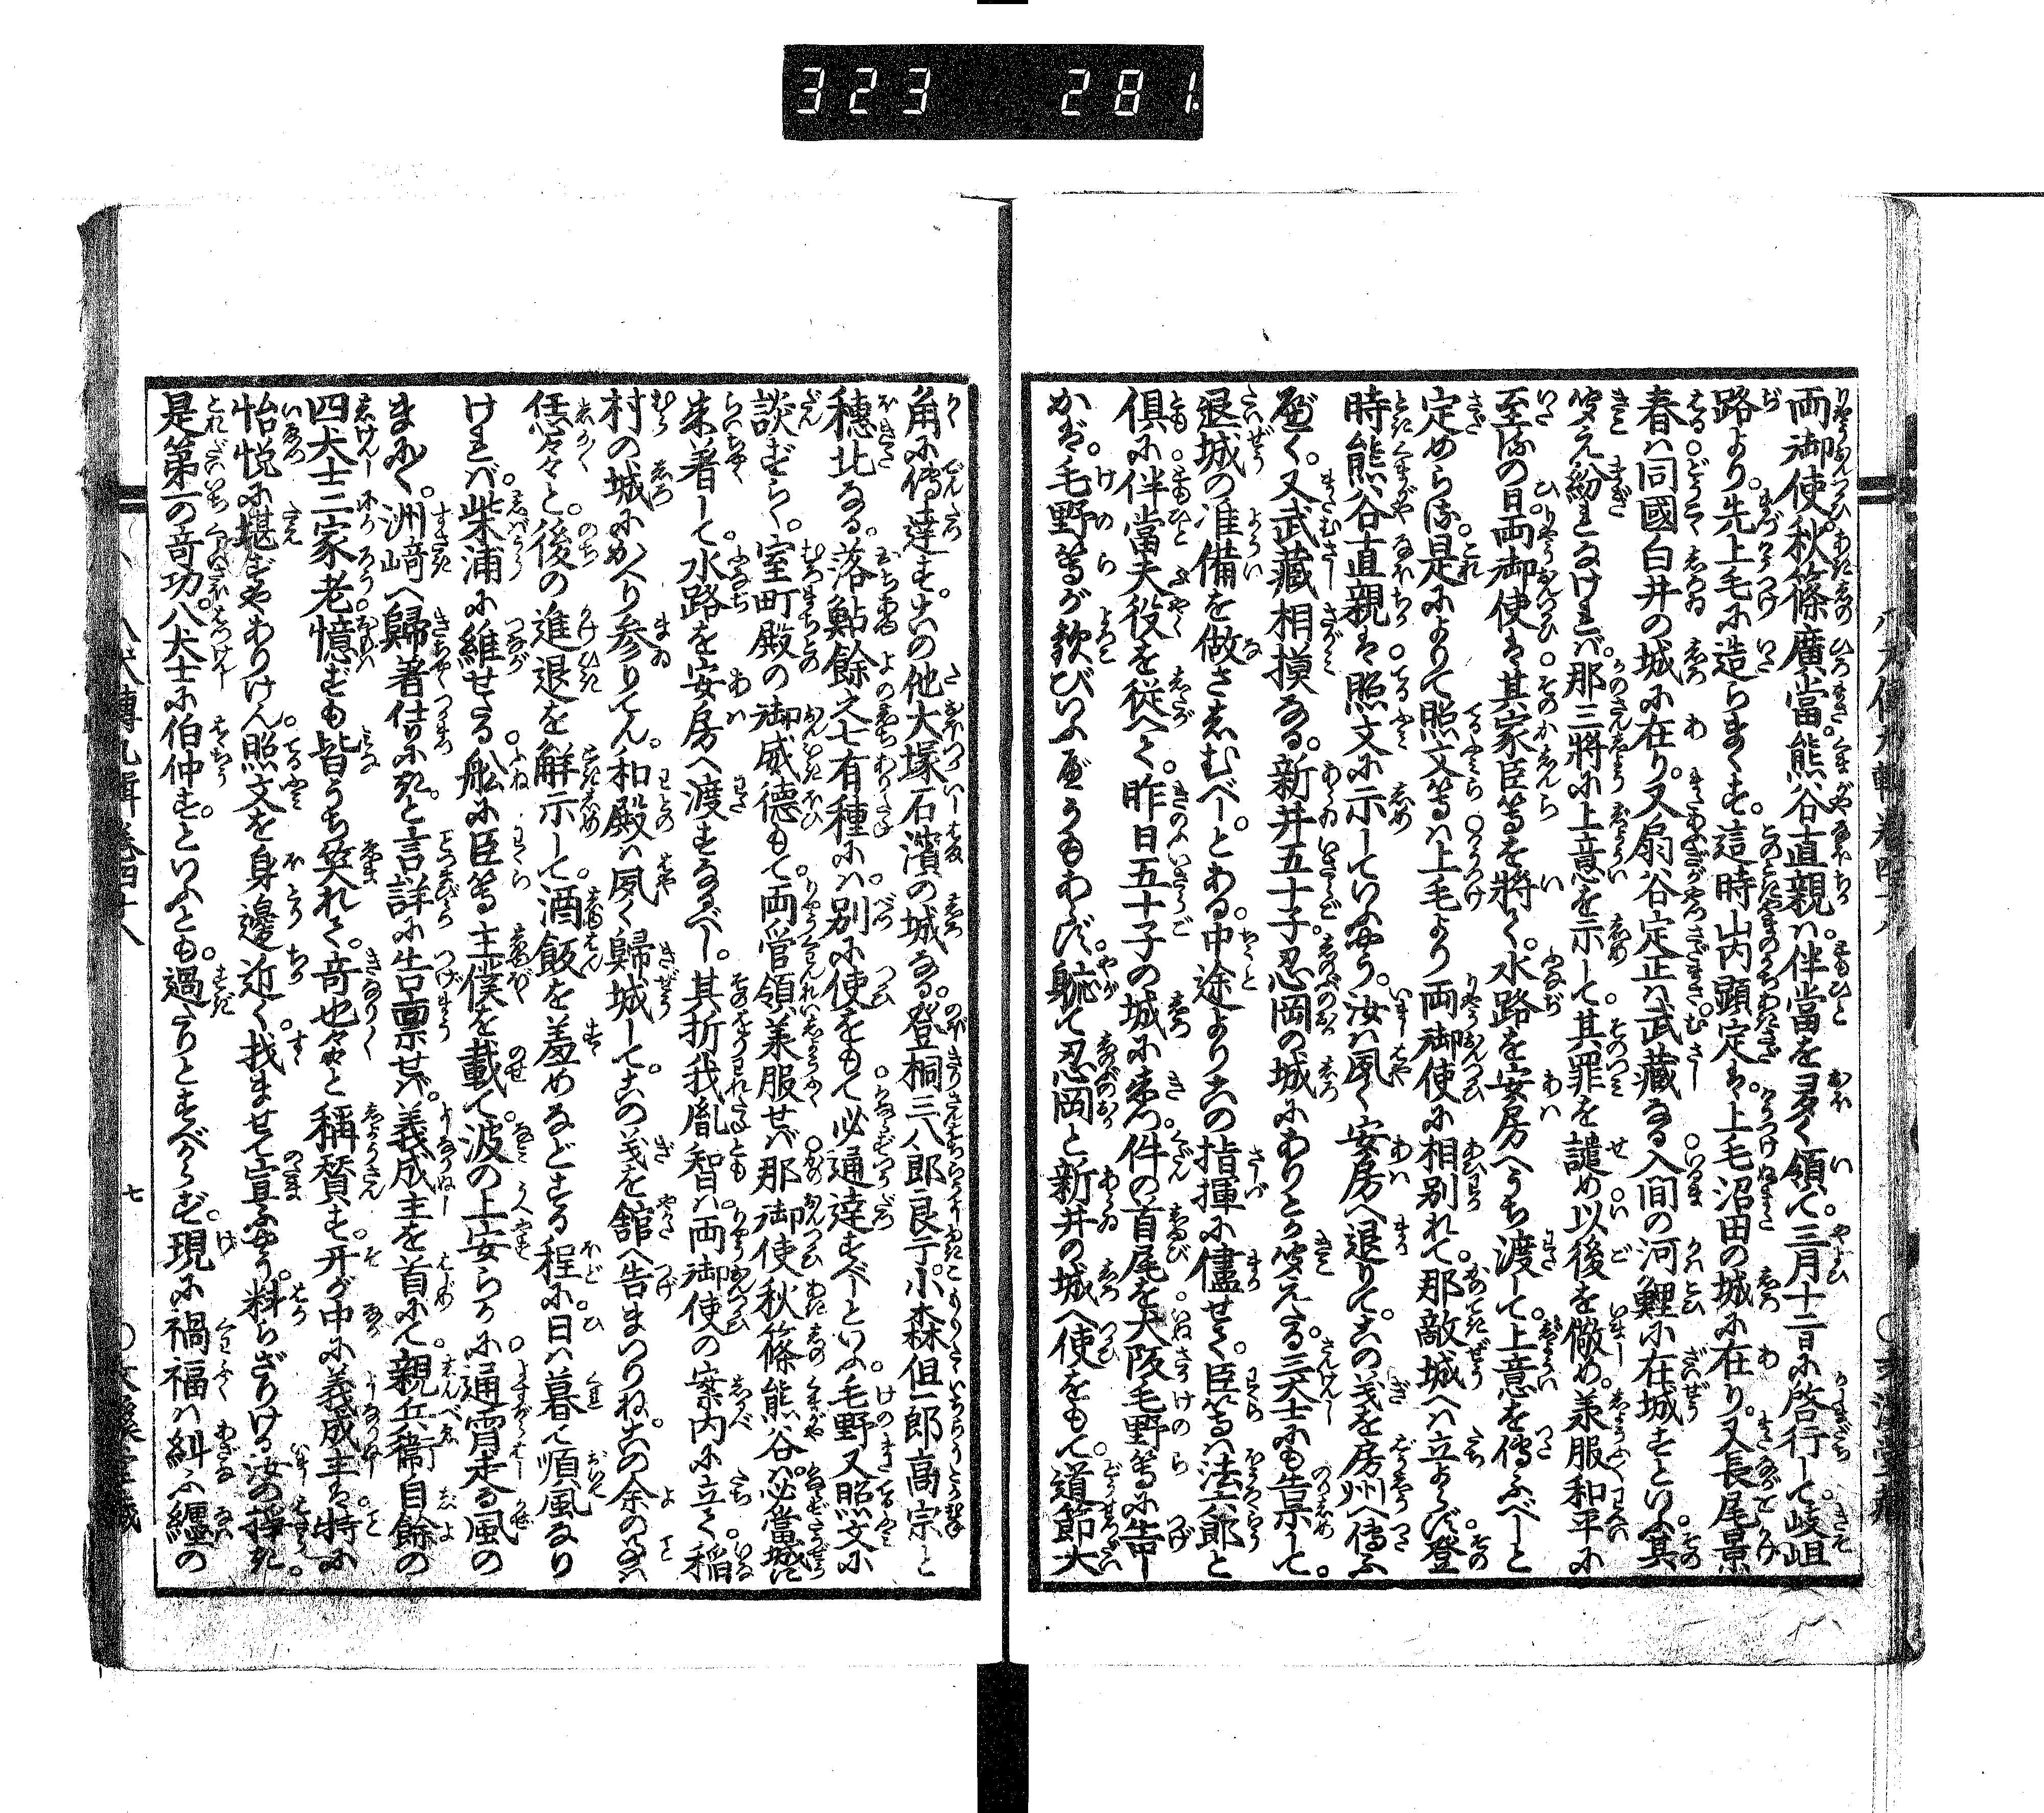 323 281
両御使秋篠廣當。熊谷直親ハ伴當を多く領て。三月十二日に啓行して岐岨
路より。先上毛に造らまくす。這時山内顕定ハ上毛沼田の城に在り。又長尾景
春ハ同國白井の城に在り。又扇谷定正ハ武藏なる入間の河鯉に在城すといふ其
笑え紛れなけれバ。那三將に上意を示して其罪を譴め以後を儆め。兼服和平に
至るの日。両御使ハ其家臣等を將て。水路を安房へうち渡して。上意を傳ふべしと
定めらる。是によりて照文等ハ上毛より両御使に相別れて。那敵城へハ立よらず。登
時熊谷直親ハ照文に示していふやう。汝ハ夙く安房へ退りて。この義を房州へ傳ふ
べし。又武藏相摸なる。新井五十子忍岡の城にありと笑えたる。三犬士にも告示して。
退城の准備を做さしむべしとある。中途よりこの指揮に儘せて。臣等ハ法六郎と
俱に伴當夫役を従へて。昨日五十子の城に来つ。件の首尾を犬阪毛野等に告
しかバ。毛野等が歓びいふべうもあらず。軈て忍岡と新井の城へ使をもて。道節大
角に傳達す。この他大塚石濱の城なる。登桐三八郎良于。小森但一郎高宗と
穗北なる。落鮎餘之七有種にハ別に使をもて必通達すべしといふ。毛野又照文に
談ずらく。室町殿の御威德もて。両管領兼服せバ那御使秋篠熊谷ハ必當城に
来着して。水路を安房へ渡すなるべし。其折我胤智ハ両御使の案内に立て稲
村の城にかへり参りてん。和殿ハ夙く歸城して。この義を舘へ告まつりね。この余の
恁々々と。後の進退を觧示して。酒飯を羞めなどする程に日ハ暮て順風なり
けれバ。柴浦に維せたる舩に臣等主僕を載て。波の上安らかに通宵走る風の
まにく。洲﨑へ歸着仕りにき。と言詳に告禀せバ。義成主を首にて。親兵衞自餘の
四犬士二家老憶ずも皆うち笑れて。竒也々々と稱賛す。开が中に義成主ハ特に
怡悦に堪ずやありけん。照文を身邊近く找ませて宣ふやう。料らざりける汝の挊き
是第一の竒功。八犬士に伯仲す。といふとも。過たりとすべからず。現に禍福ハ糾ふ纏の
八犬傳九輯卷四十八
七